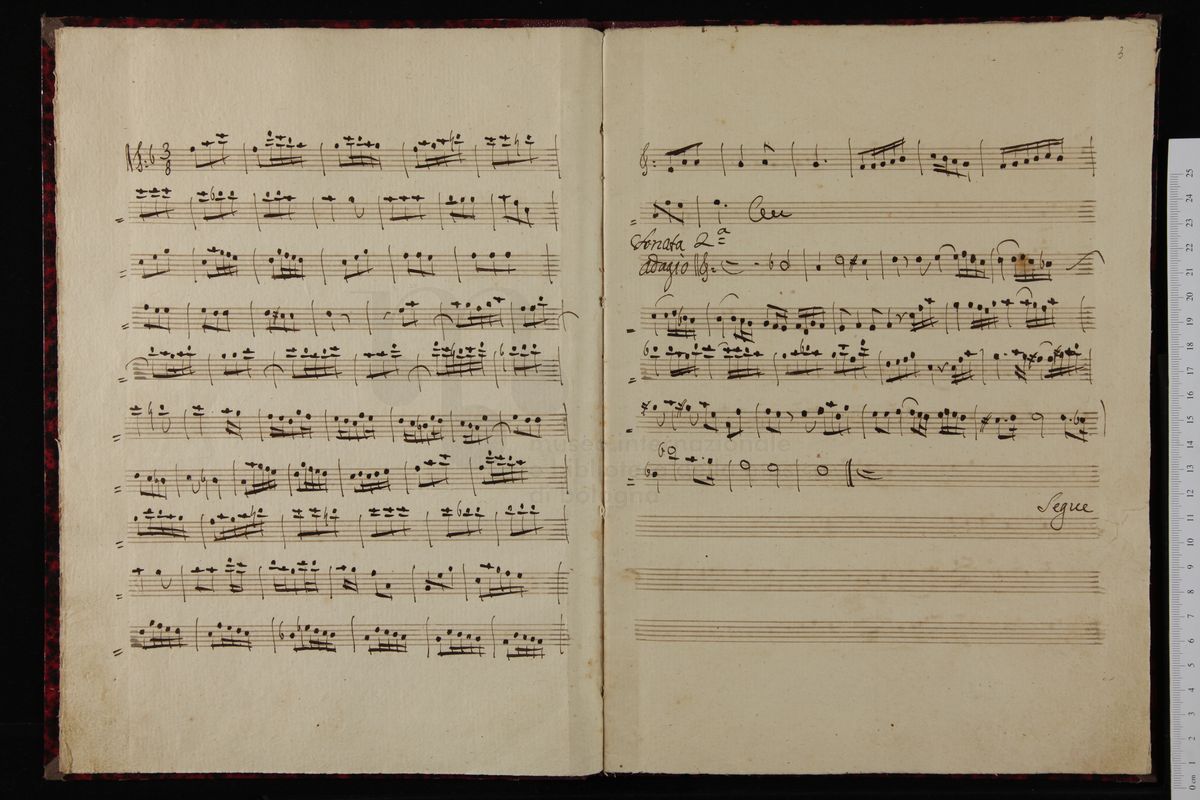 3
8
3
Sonata 2ª
adagio
Segue
museo internazionale
e biblioteca della musica
di bologna
0 cm 1 2 3 4 5 6 7 8 9 10 11 12 13 14 15 16 17 18 19 20 21 22 23 24 25